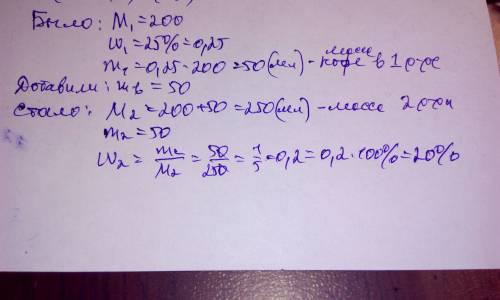 Было: M₁=200
w₁=25%=0,25
m₁=0,25·200=50(мл)-масса кофе в 1 р-ре
Добавили: mв=50
Стало: M₂=200+50=250(мл)-масса 2 р-ра
m₂=50
w₂=m₂/M₂=50/250=1/5=0,2=0,2·100%=20%